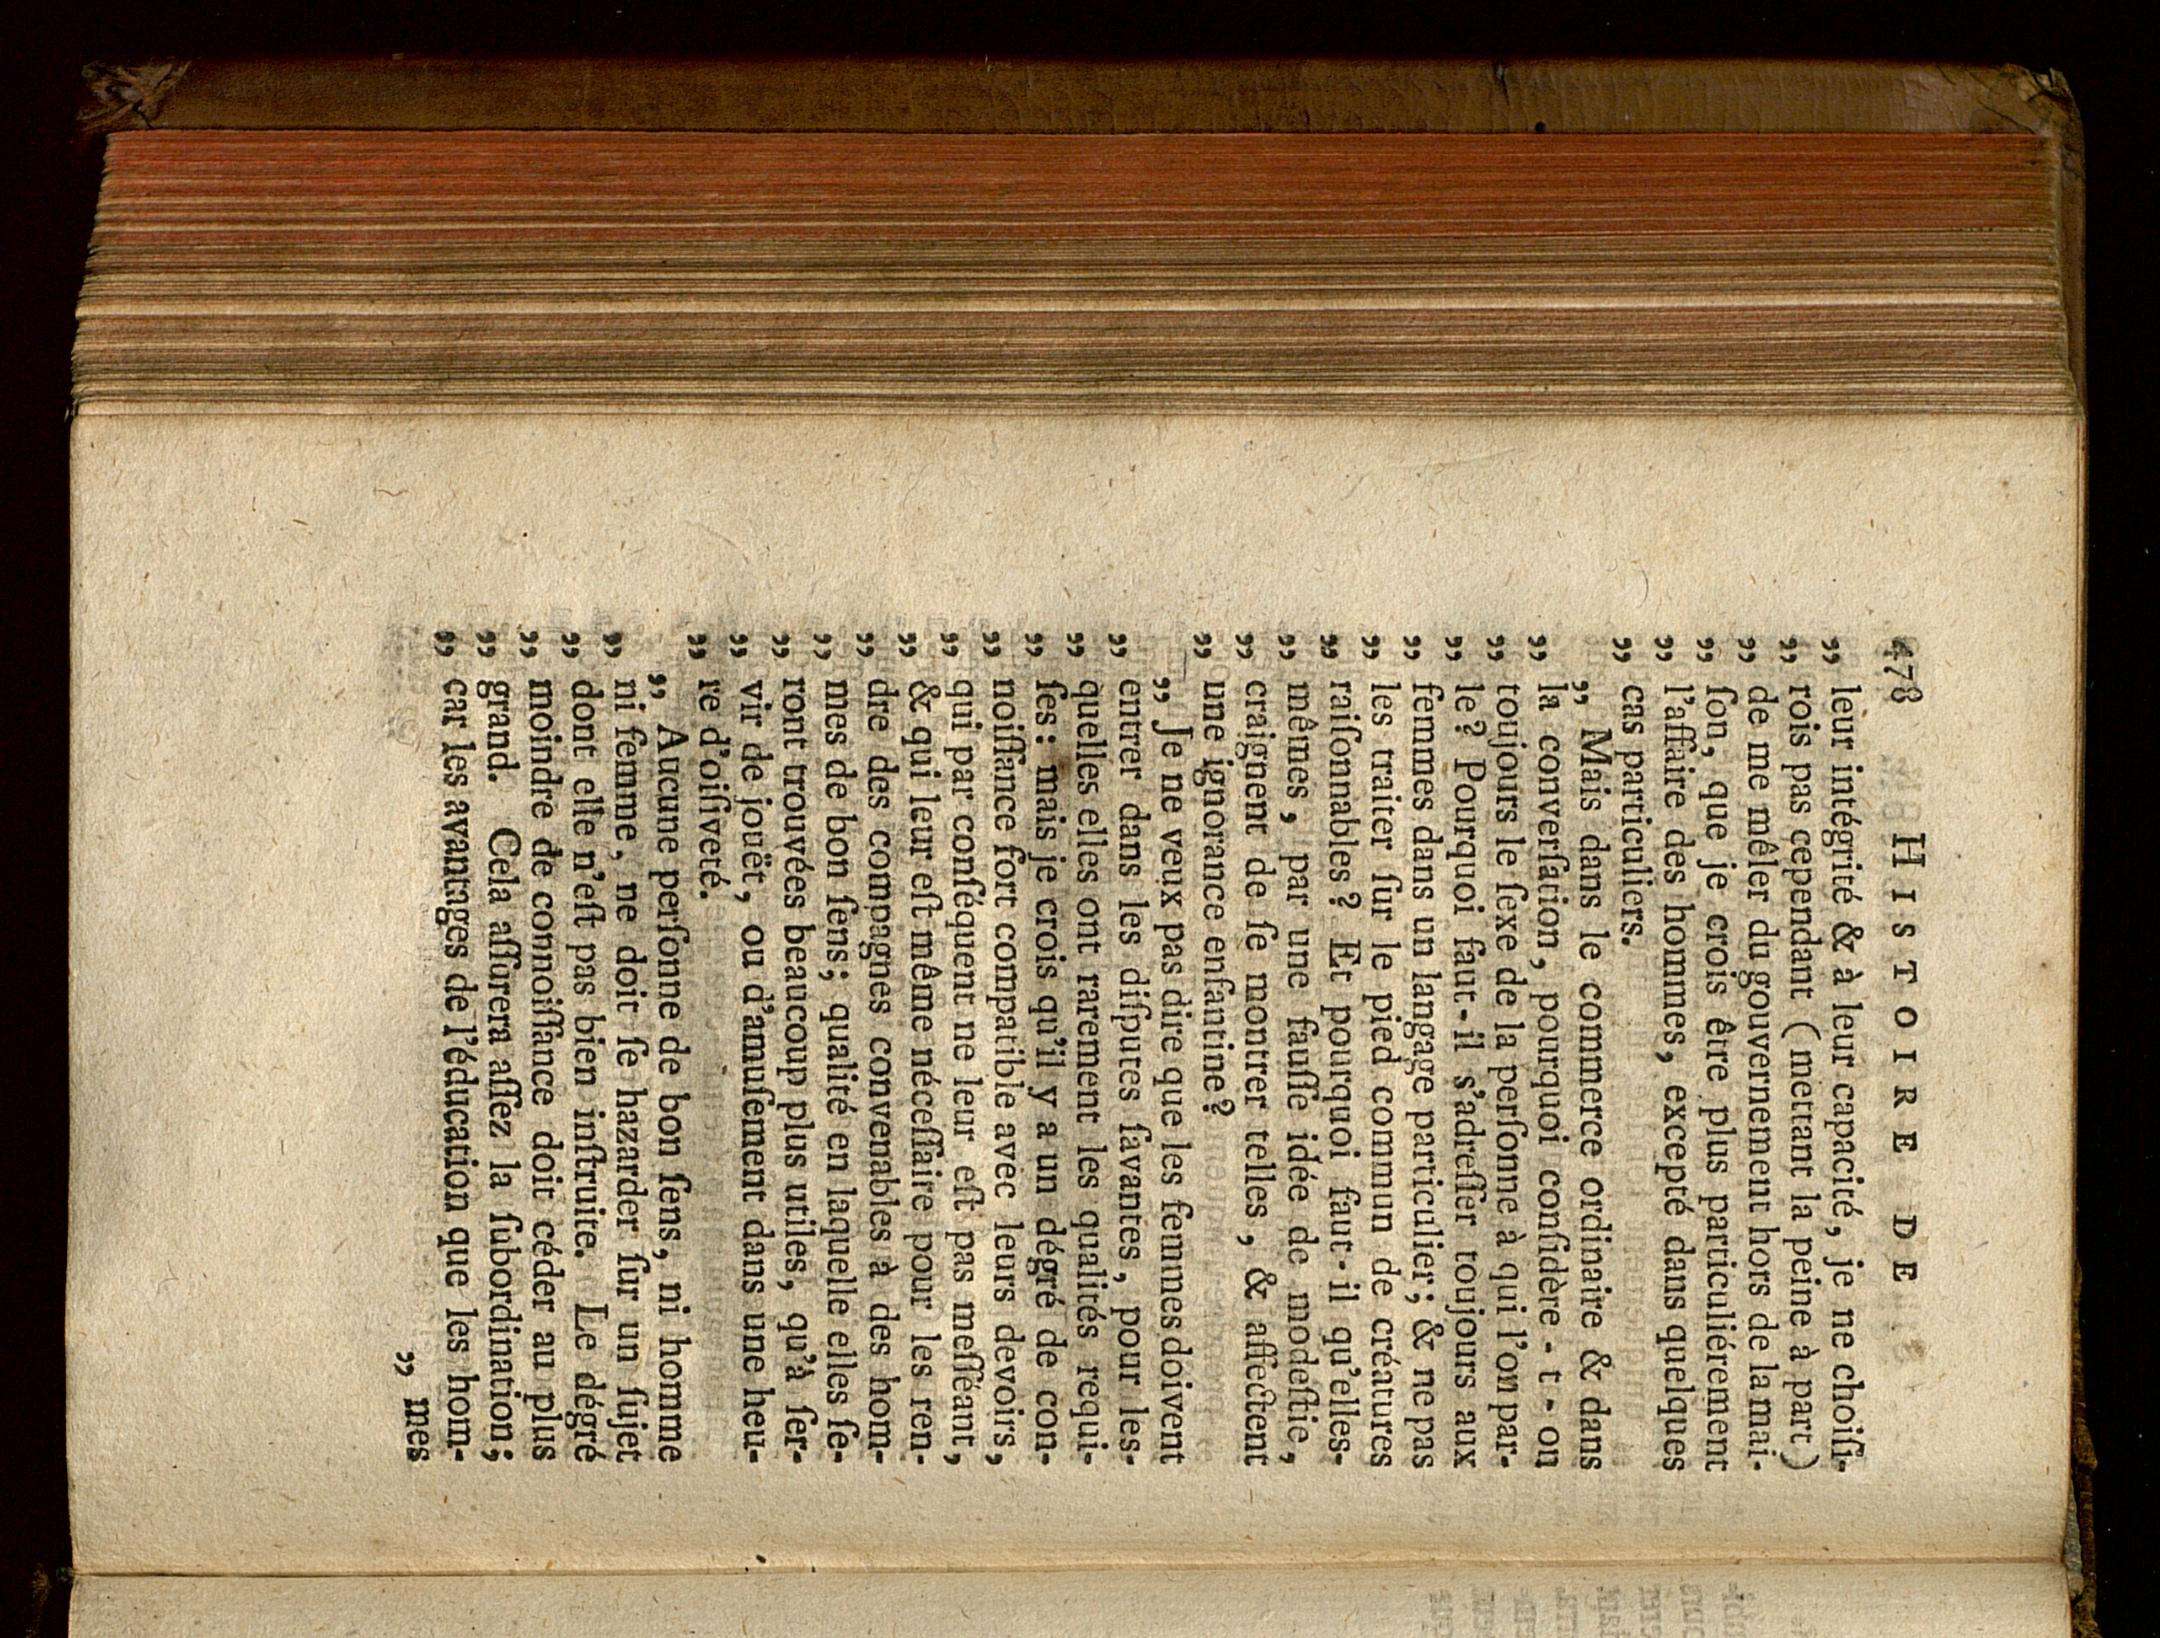 478 HISTOIRE DE
„ leur intégrité & à leur capacité, je ne choiſi-
„ rois pas cependant (mettant la peine à part)
„ de me mêler du gouvernement hors de la mai-
„ ſon, que je crois être plus particuliérement
„ l'affaire des hommes, excepté dans quelques
„ cas particuliers.
„ Mais dans le commerce ordinaire & dans
„ la converſation, pourquoi conſidère-t-on
„ toujours le ſexe de la perſonne à qui l'on par-
„ le? Pourquoi faut-il s'adreſſer toujours aux
„ femmes dans un langage particulier; & ne pas
„ les traiter ſur le pied commun de créatures
„ raiſonnables? Et pourquoi faut-il qu'elles-
„ mêmes, par une fauſſe idée de modeſtie,
„ craignent de ſe montrer telles, & affectent
„ une ignorance enfantine?
„ Je ne veux pas dire que les femmes doivent
„ entrer dans les diſputes ſavantes, pour les-
„ quelles elles ont rarement les qualités requi-
„ ſes: mais je crois qu'il y a un dégré de con-
„ noiſſance fort compatible avec leurs devoirs,
„ qui par conſéquent ne leur eſt pas meſſéant,
„ & qui leur eſt même néceſſaire pour les ren-
„ dre des compagnes convenables à des hom-
„ mes de bon ſens; qualité en laquelle elles ſe-
„ ront trouvées beaucoup plus utiles, qu'à ſer-
„ vir de jouët, ou d'amuſement dans une heu-
„ re d'oiſiveté.
„ Aucune perſonne de bon ſens, ni homme
„ ni femme, ne doit ſe hazarder ſur un ſujet
„ dont elle n'eſt pas bien inſtruite. Le dégré
„ moindre de connoiſſance doit céder au plus
„ grand. Cela aſſurera aſſez la ſubordination;
„ car les avantages de l'éducation que les hom-
„ mes